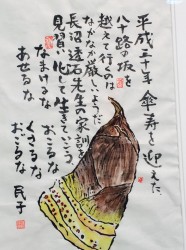 平成三十年 傘寿を迎えた
八十路の坂を
越えて行くのは
なかなか厳しいようだ
長辺透石先生の家訓を
見習い化して生きていこう。
なまけるな おこるな
あせるな おごるな
くさるな
おこるな
民子